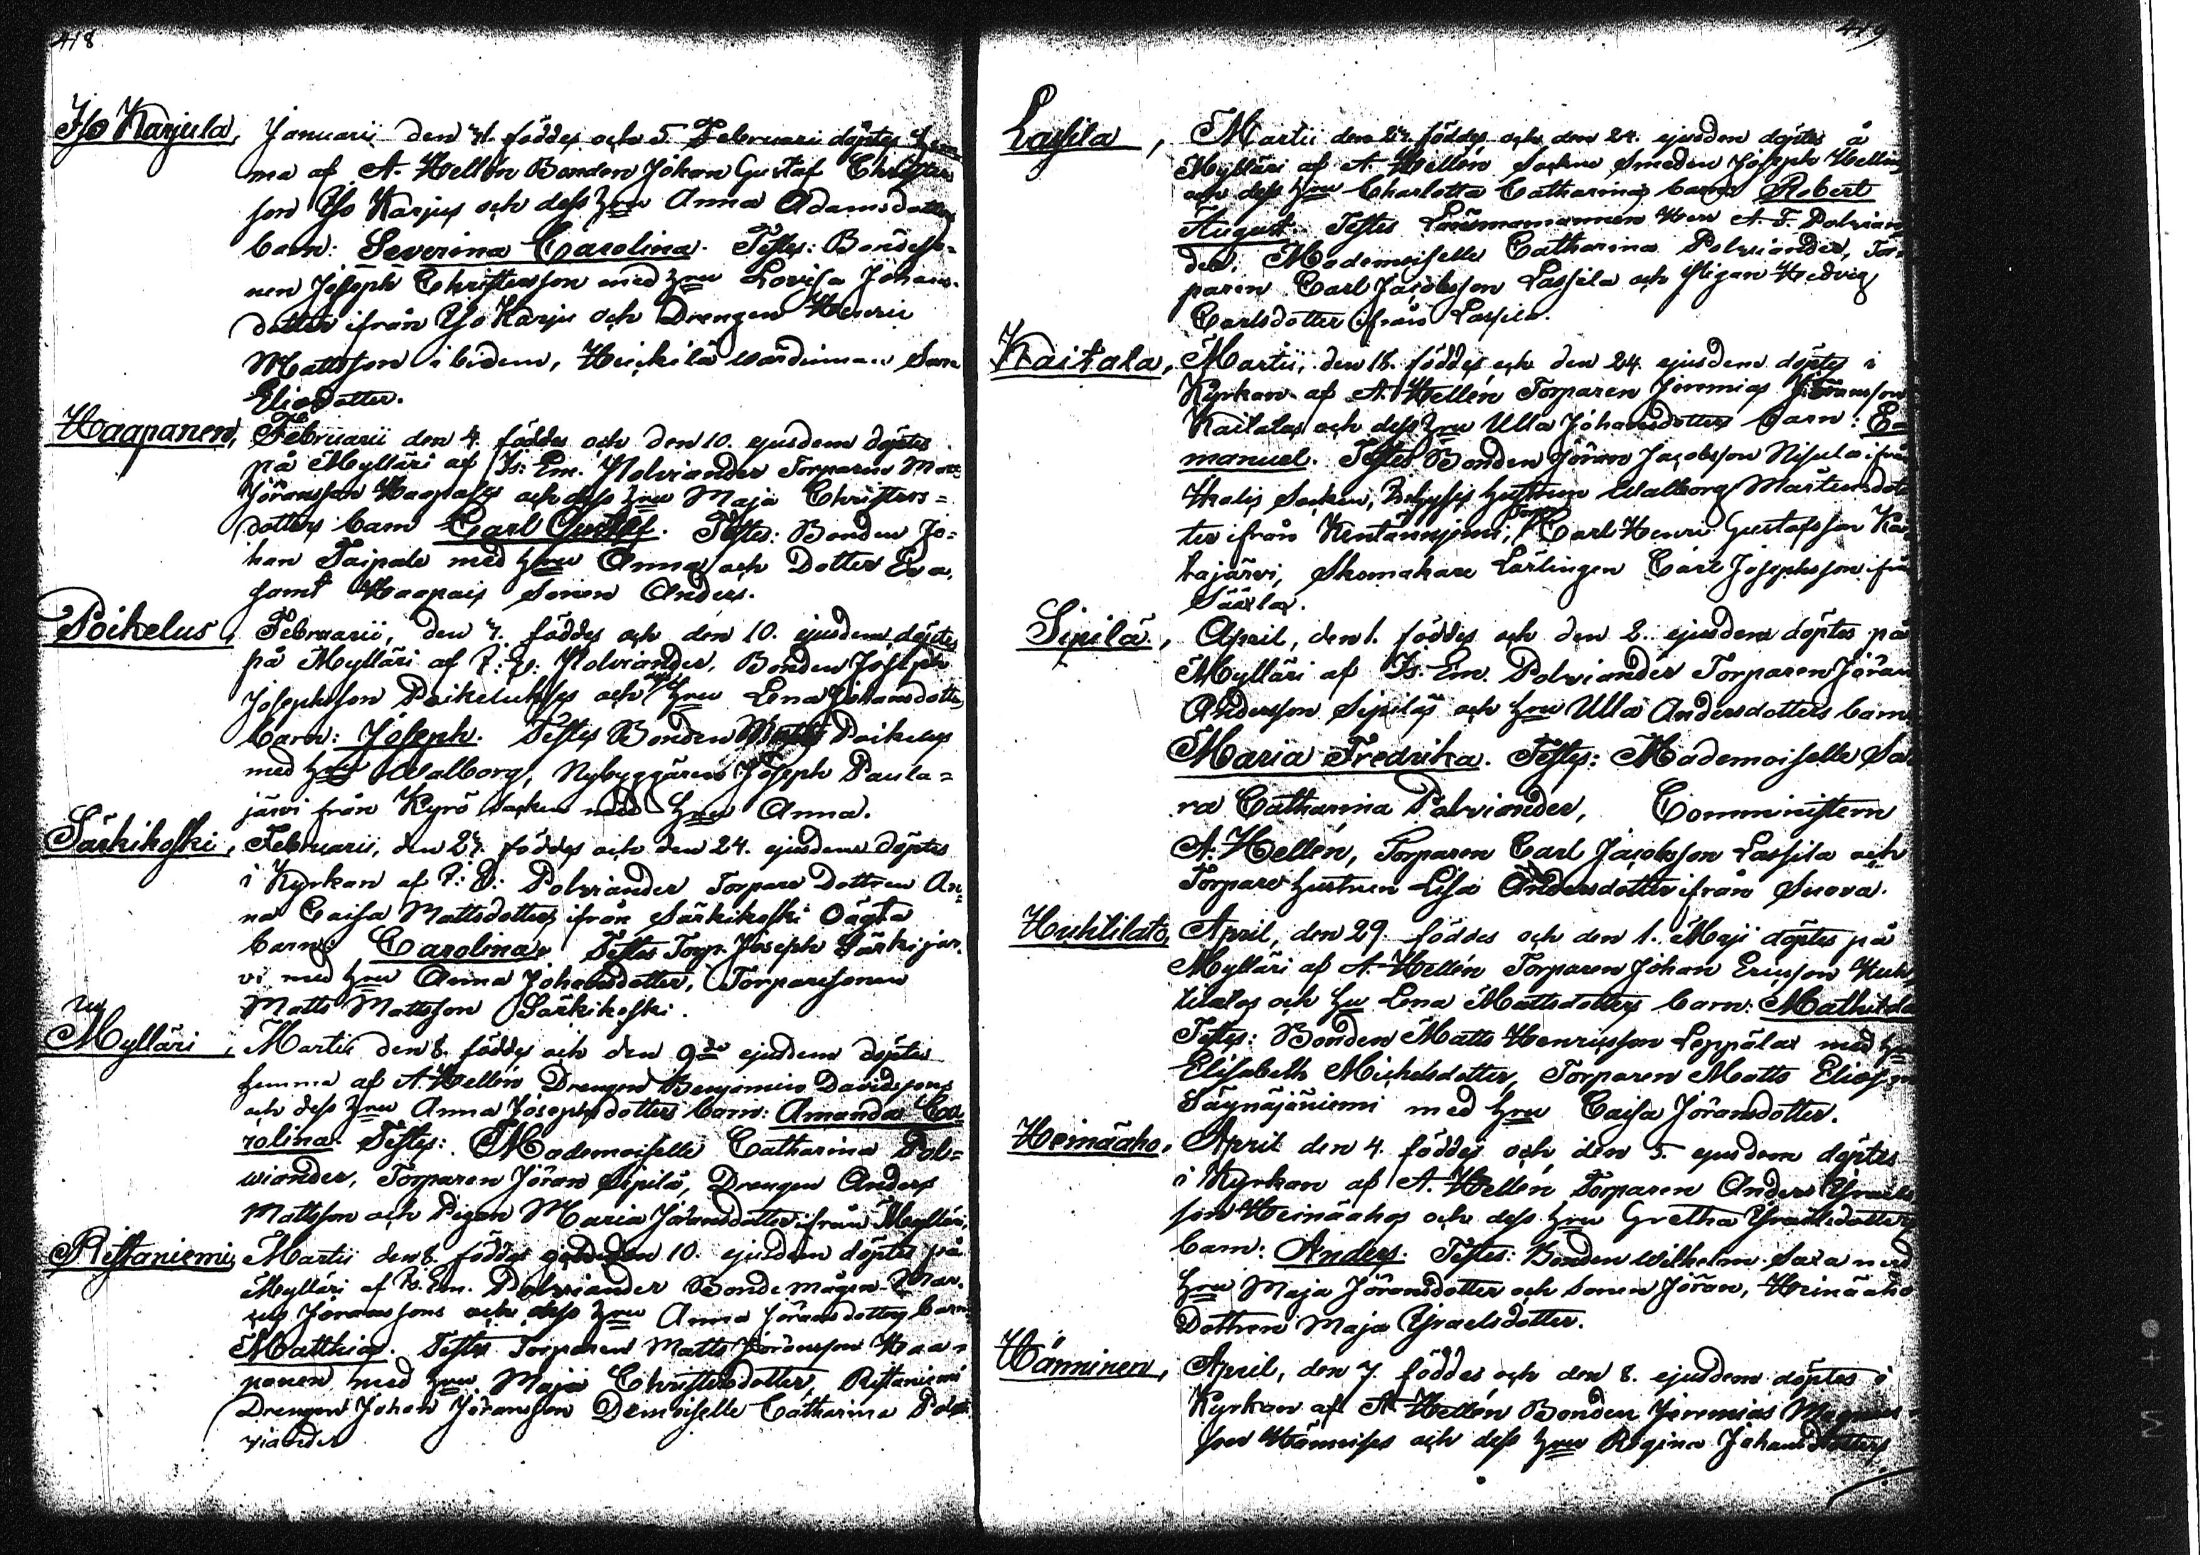 418
Iso Karjula, Januarii den 31. föddes och 5 Februari döptes hem
ma af A. Hellén Bonden Johan Gustaf Christers
son Iso Karjus och dess hru Anna Adamsdotters
barn: Severina Carolina. Testes: Bondeso-
nen Joseph Christersson med hru Lovisa Johans-
dotter ifrån Iso Karju och Drengen Henric
Mattsson ibidem, Heickilä wärdinnan Sara
Eliedotter.
Haapanen, Februarii den 4. föddes och den 10. ejusdem döptes
på Mylläri af Is: Em. Polviander Torparen Matts
Jöransson Haapases och dess hru Maja Christers=
dotters barn Carl Gustaf. Testes: Bonden Jo=
han Taipale med hru Anna och Dotter Eva,
samt Haapais Sonen Anders.
Poikelus, Februarii, den 7. föddes och den 10. ejusdem döptes
på Mylläri af Polviander, Bonden Joseph
Josephsson Poikeluses och dess hru Lena Johansdotters
barn: Joseph. Testes Bonden Matts Poikelus
med hru Walborg, Nybyggaren Joseph Paula=
järvi från Kyrö socken med hru Anna.
Särkikoski, Februarii, den 23. föddes och den 24. ejusdem döptes
i Kyrkan af Polviander Torpare Dottren An=
na Caisa Mattsdotters ifrån Särkikoski Oägta
barn: Carolina. Testes Torp. Joseph Särkijär-
vi med hru Anna Johansdotter, Torparesonen
Matts Mattsson Särkikoski.
Mylläri, Martii den 8. föddes och den 9de ejusdem döptes
hemma af A. Hellén Drengen Benjamin Davidssons
och dess hru Anna Josephsdotters barn: Amanda Ca-
rolina. Testes: Mademoiselle Catharina Pol=
wiander, Torparen Jöran Sipilä, Drengen Anders
Mattsson och Pigan Maria Jöransdotter ifrån Mylläri.
Ristaniemi, Martii den 8. föddes och den 10. ejusdem döptes på
Mylläri af Is. Em. Polviander Bondemågen Mar-
cus Jöranssons och dess hru Anna Jöransdotters barn
Matthias. Testes Torparen Matts Jöransson Haa-
panen med hru Maja Christersdotter, Ristaniemi
Drengen Johan Jöransson Demoiselle Catharina Pol-
viander
419
Lassila, Martii den 23. föddes och den 24. ejusdem döptes å
Mylläri af A. Hellén Sockne Smeden Joseph Hellins
och dess hru Charlotta Catharinas barn Robert
August. Testes Länsmannen Herr A. F. Polvian
der, Mademoiselle Catharina Polviander, Tor-
paren Carl Jacobsson Lassila och Pigan Hedvig
Carlsdotter ifrån Lassila.
Kaitala, Martii, den 18. föddes och den 24. ejusdem döptes i
Kyrkan af A. Hellén Torparen Jeremias Jöransson
Kaitalas och dess hru Ulla Johansdotters barn: Em
manuel. Testes Bonden Jöran Jacobsson Nisula ifrån
Ikalis Socken, hustrun Walborg Mårtensdot
ter ifrån Kentänniemi, Carl Henric Gustafsson Ka
tajärvi, Skomakare Lärlingen Carl Josephsson ifrån
Säärla.
Sipilä, April, den 1. föddes och den 2. ejusdem döptes på
Mylläri af Is. Em. Polviander Torparen Jöran
Andersson Sipiläs och hru Ulla Andersdotters barn
Maria Fredrika. Testes: Mademoiselle Sa
ra Catharina Polviander, Comministern
A. Hellén, Torparen Carl Jacobsson Lassila och
Torpare hustrun Lisa Andersdotter ifrån Suova.
Huhtilato, April, den 29. föddes och den 1. Maji döptes på
Mylläri af A. Hellén Torparen Johan Ericsson Huh
tilatos och hru Lena Mattsdotters barn: Mathilda
Testes: Bonden Matts Henricsson Leppälax med hru
Elisabeth Michelsdotter, Torparen Matts Eliasson
Säynäjäniemi med hru Caisa Jöransdotter.
Heinäaho, April den 4. föddes och den 5. ejusdem döptes
i Kyrkan af A. Hellén Torparen Anders Israels
son Heinäahos och dess hru Gretha Israelsdotters
barn: Anders. Testes: Bonden Wilhelm Saxa med
hru Maja Jöransdotter och Sonen Jöran, Heinäaho
Dottren Maja Israelsdotter.
Hänninen, April, den 7. föddes och den 8. ejusdem döptes i
Kyrkan af A. Hellén Bonden Jeremias Magnus
son Hännises och dess hru Regina Johansdotters